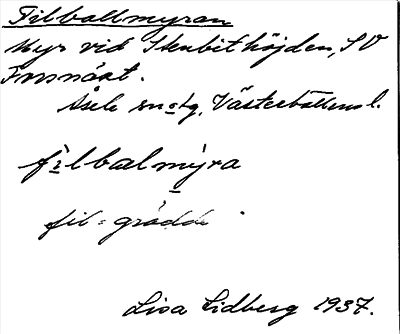 Filballmyran
Myr vid Stenbithöjden, SV
Åsele sn o tg, Västerbottens l.
filbalmyra
fil = grädde.
Lisa Lidberg 1937.